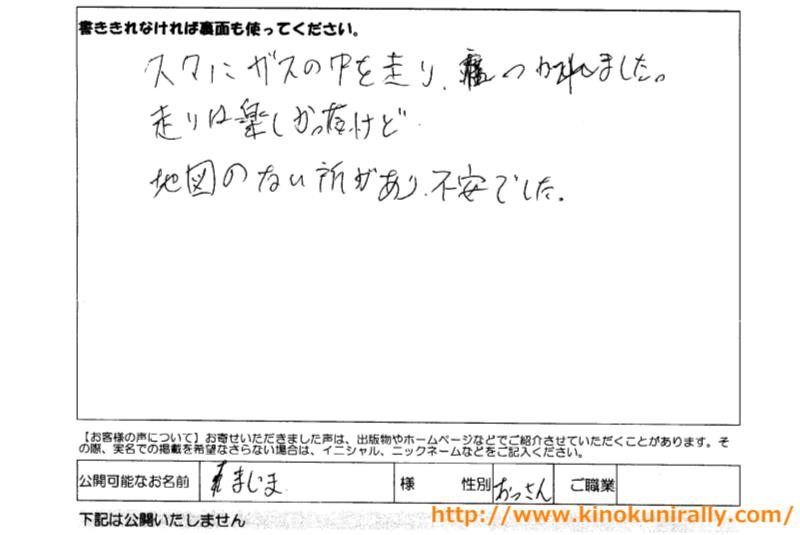 書ききれなければ裏面も使ってください。
久々にガスの中を走り、つかれました。
走りは楽しかったけど
地図のない所があり、不安でした。
【お客様の声について】お寄せいただきました声は、出版物やホームページなどでご紹介させていただくことがあります。そ
の際、実名での掲載を希望なさらない場合は、イニシャル、ニックネームなどをご記入ください。
公開可能なお名前 まじま 様 性別 おっさん ご職業
下記は公開いたしません
http://www.kinokunirally.com/